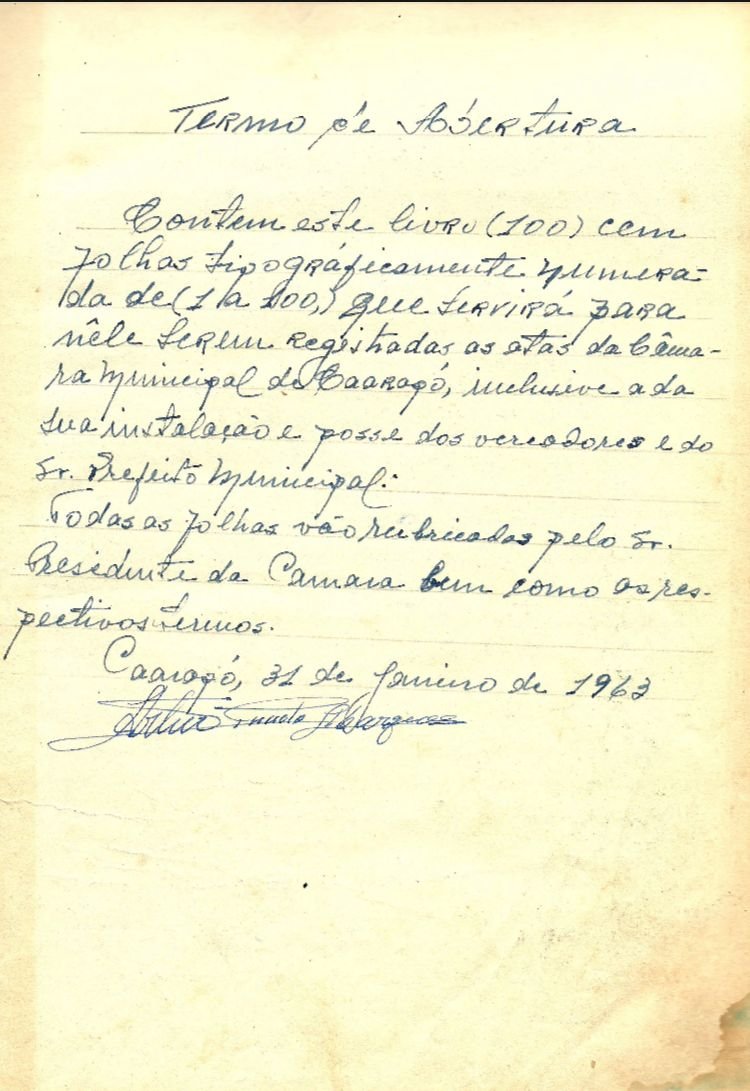 Termo de Abertura
Contem este livro (100) cem
folhas tipográficamente numera-
da de (1 a 100,) que servirá para
nêle serem registradas as atas da Câma-
ra Municipal de Caarapó, inclusive a da
sua instalação e posse dos vereadores e do
Sr. Prefeito Municipal.
Todas as folhas vão rubricadas pelo Sr.
Presidente da Camara bem como os res-
pectivos termos.
Caarapó, 31 de Janeiro de 1963